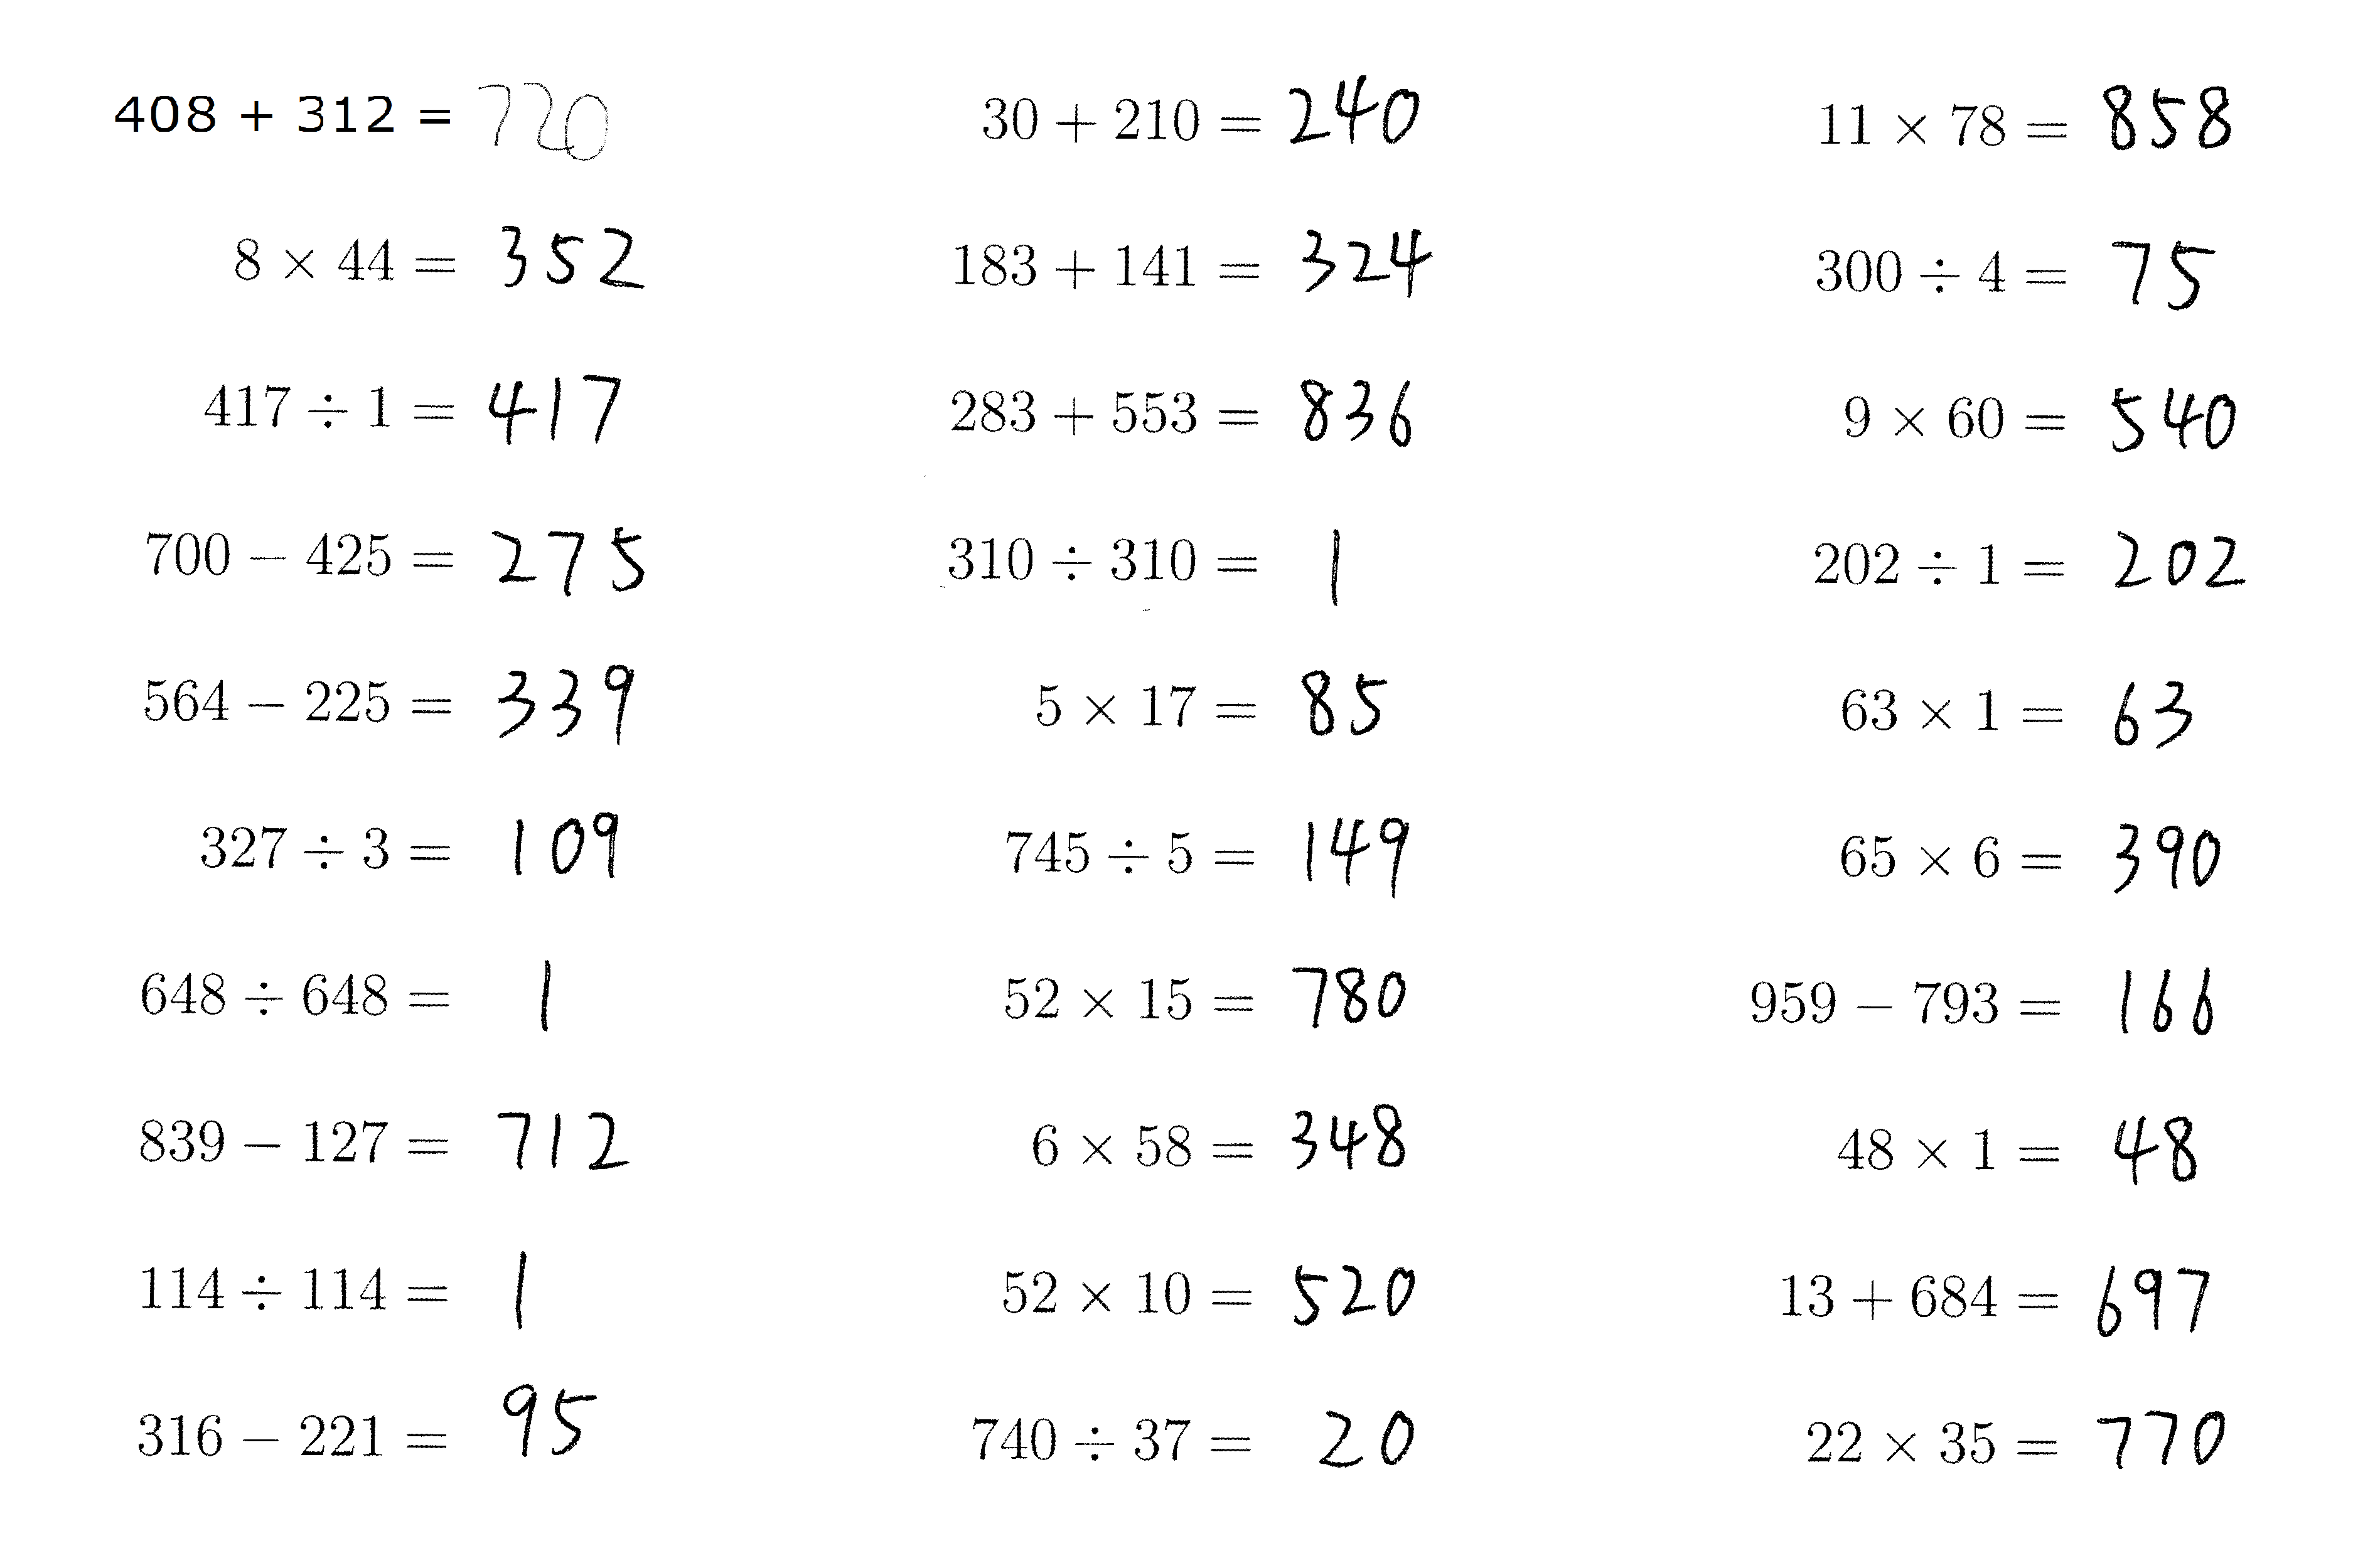 408 + 312 = 720
8 × 44 = 352
417 ÷ 1 = 417
700 − 425 = 275
564 − 225 = 339
327 ÷ 3 = 109
648 ÷ 648 = 1
839 − 127 = 712
114 ÷ 114 = 1
316 − 221 = 95
30 + 210 = 240
183 + 141 = 324
283 + 553 = 836
310 ÷ 310 = 1
5 × 17 = 85
745 ÷ 5 = 149
52 × 15 = 780
6 × 58 = 348
52 × 10 = 520
740 ÷ 37 = 20
11 × 78 = 858
300 ÷ 4 = 75
9 × 60 = 540
202 ÷ 1 = 202
63 × 1 = 63
65 × 6 = 390
959 − 793 = 166
48 × 1 = 48
13 + 684 = 697
22 × 35 = 770